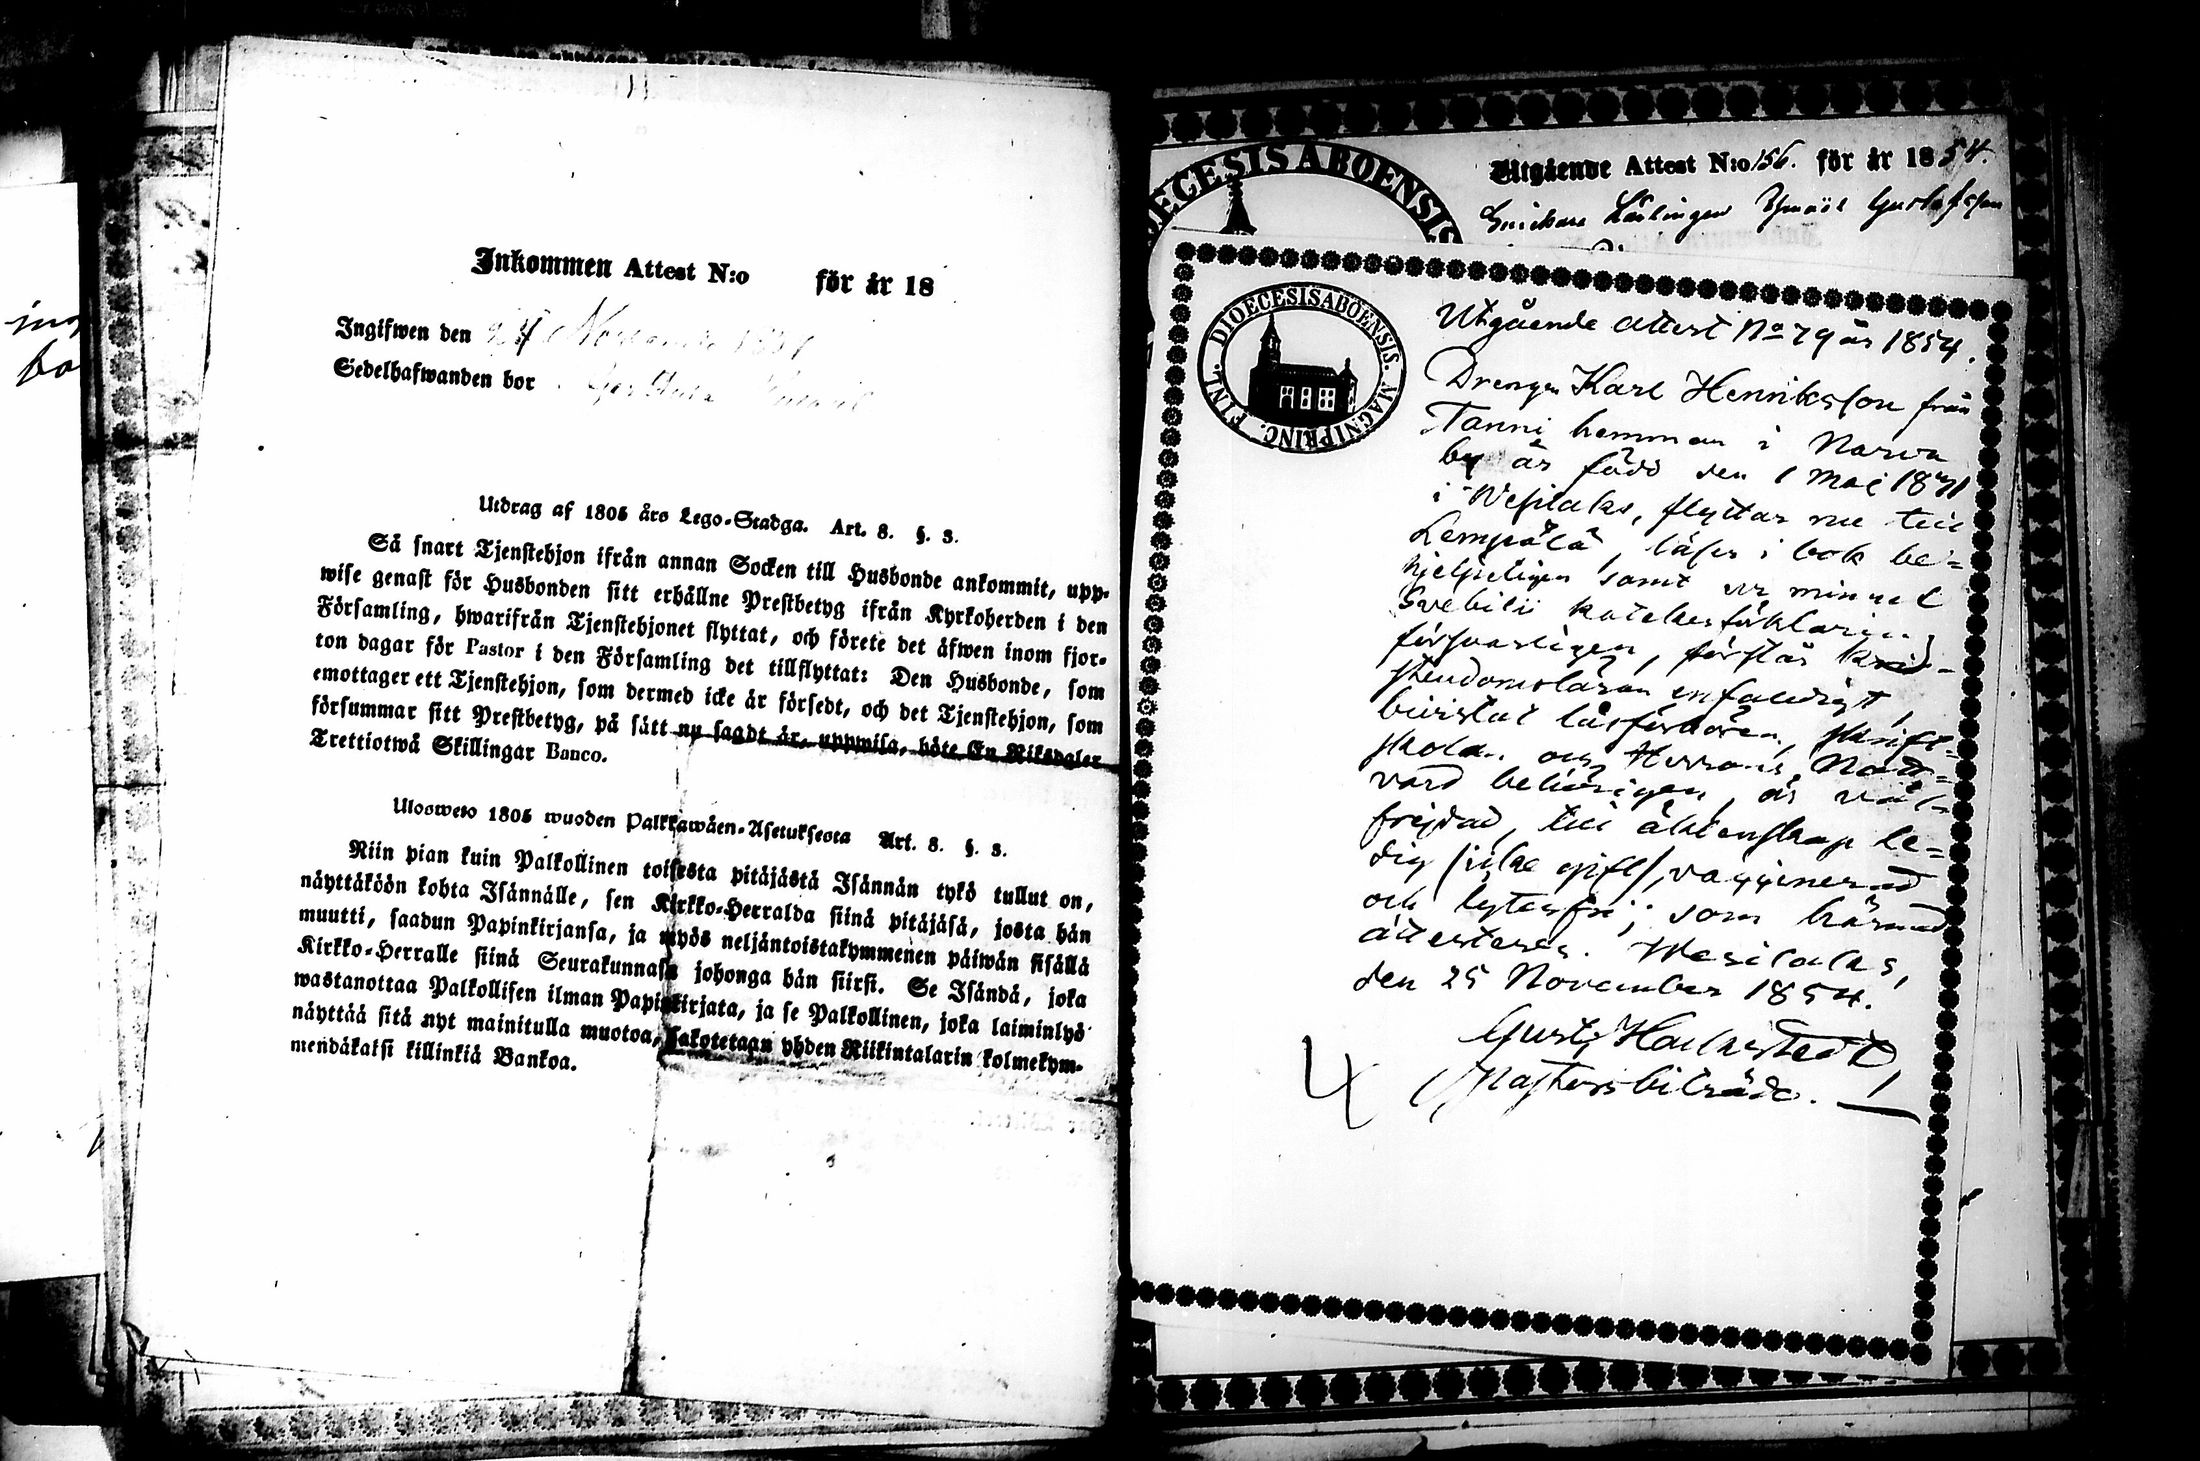 Inkommen Attest N:o för år 18
Ingifwen den 24 November
Sedelhafwanden bor
Utdrag af 1805 års Lego-Stadga. Art. 8. §. 3.
Så snart Tjenstehjon ifrån annan Socken till Husbonde ankommit, upp-
wise genast för Husbonden sitt erhållne Prestbetyg ifrån Kyrkoherden i den
Församling, hwarifrån Tjenstehjonet flyttat, och förete det äfwen inom fjor-
ton dagar för Pastor i den Församling det tillflyttat: Den Husbonde, som
emottager ett Tjenstehjon, som dermed icke är försedt, och det Tjenstehjon, som
försummar sitt Prestbetyg, på sätt nu sagdt är, uppwisa, böte En Riksdaler
Trettiotwå Skillingar Banco.
Ulosweto 1805 wuoden Palkkawäen-Asetuksesta Art. 8. §. 3.
Niin pian kuin Palkollinen toisesta pitäjästä Isännän tykö tullut on,
näyttäköön kohta Isännälle, sen Kirkko-Herralda siinä pitäjäsä, josta hän
muutti, saadun Papinkirjansa, ja myös neljäntoistakymmenen päiwän sisällä
Kirkko-Herralle siinä Seurakunnasa johonga hän siirsi. Se Isändä, joka
wastanottaa Palkollisen ilman Papinkirjata, ja se Palkollinen, joka laiminlyö
näyttää sitä nyt mainitulla muotoa, sakotetaan yhden Riikintalarin kolmekym-
mendäkaksi killinkiä Bankoa.
DIOECESIS ABOENSIS
Utgående Attest N:o 156. för år 1854.
Snickare Lärlingen Gustafsson
DIOECESIS ABOENSIS. MAGNI PRINC. FINL.
Utgående attest No 79 år 1854.
Drengen Karl Henriksson från
Tanni hemman i Narva
by är född den 1 Maj 1831
i Wesilaks, flyttar nu till
Lempälä, läser i bok be-
hjelpeligen samt ur minnet
Svebilii katekesförklaring
försvarligen, förstår kri-
stendomsläran enfaldigt,
bevistat läsförhören, skrift-
skolan och Herrans Natt-
vard behörigen, är väl-
frejdad, till äktenskap le-
dig /icke gift/, vaccinerad
och lytesfri; som härmed
attesteras. Wesilaks,
den 25 November 1854.
Gust. Hahnstedt
Pastorsbiträde.
4